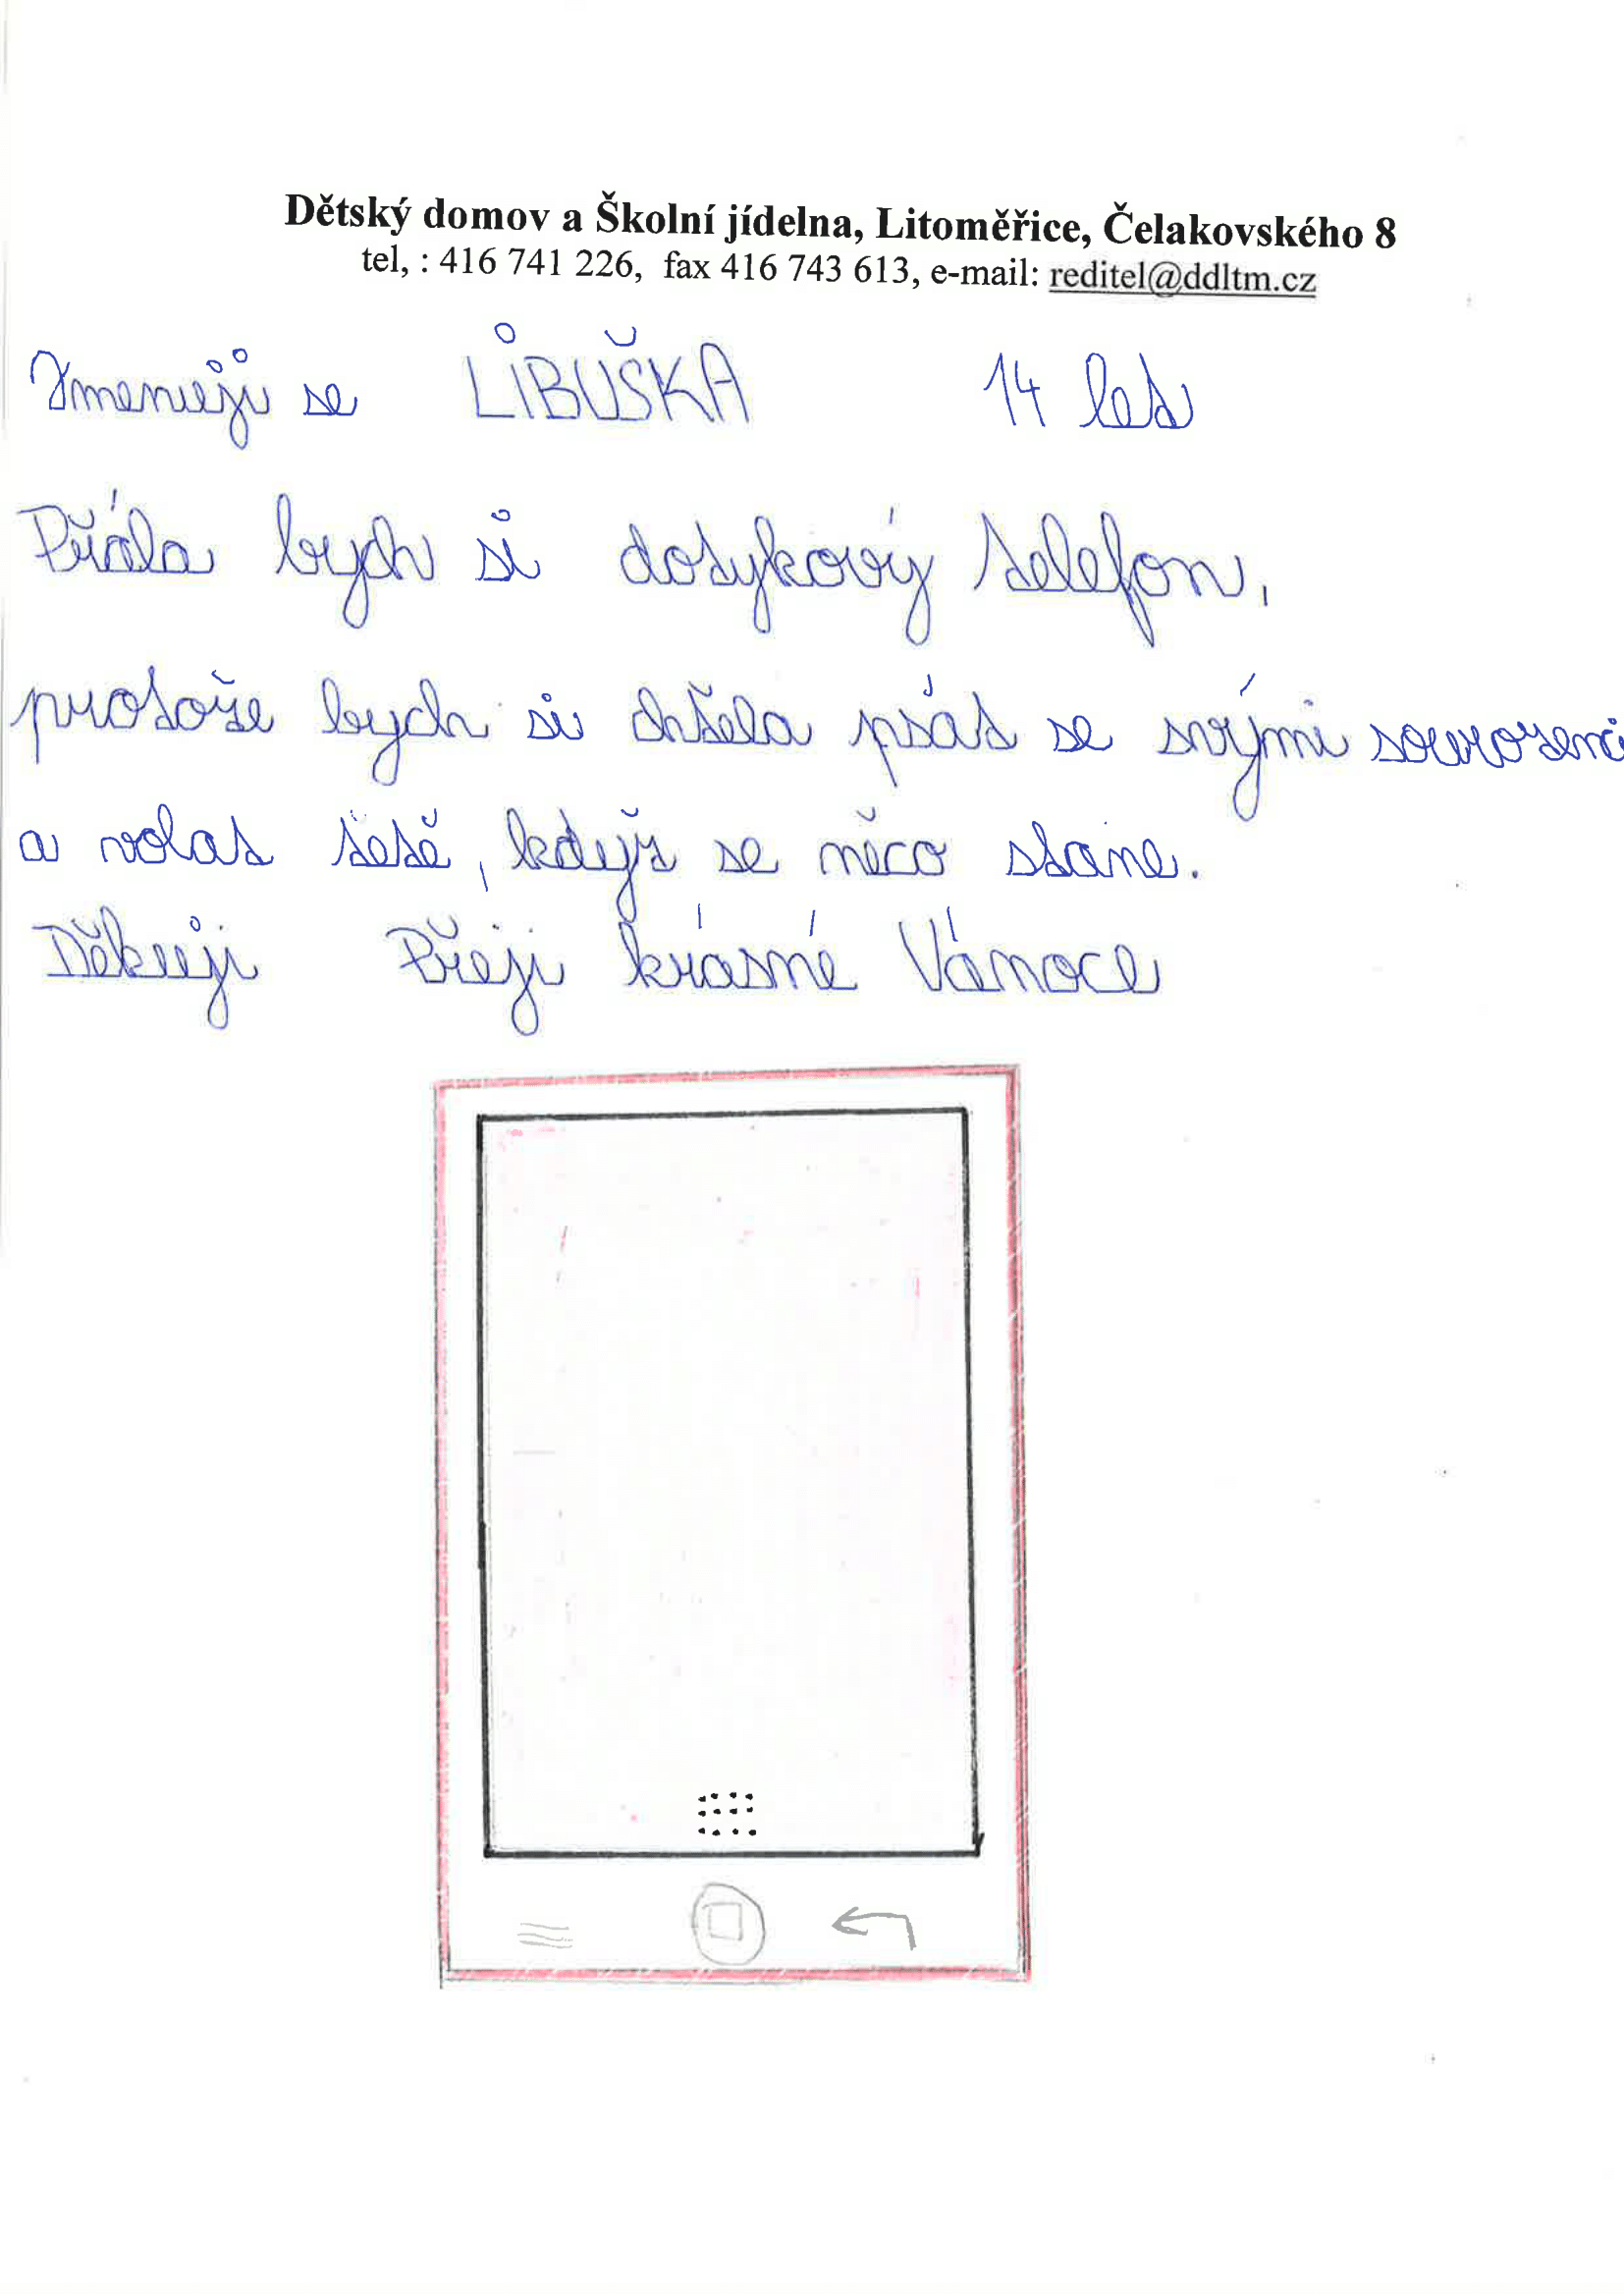 Dětský domov a Školní jídelna, Litoměřice, Čelakovského 8
tel, : 416 741 226, fax 416 743 613, e-mail: reditel@ddltm.cz
Jmenuji se LIBUŠKA 14 let
Přála bych si dotykový telefon,
protože bych si chtěla psát se svými sourozenci
a volat tetě, když se něco stane.
Děkuji Přeji krásné Vánoce